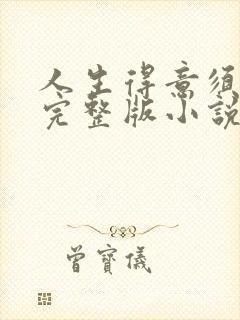 人生得意須
完整版小說
曾寶儀